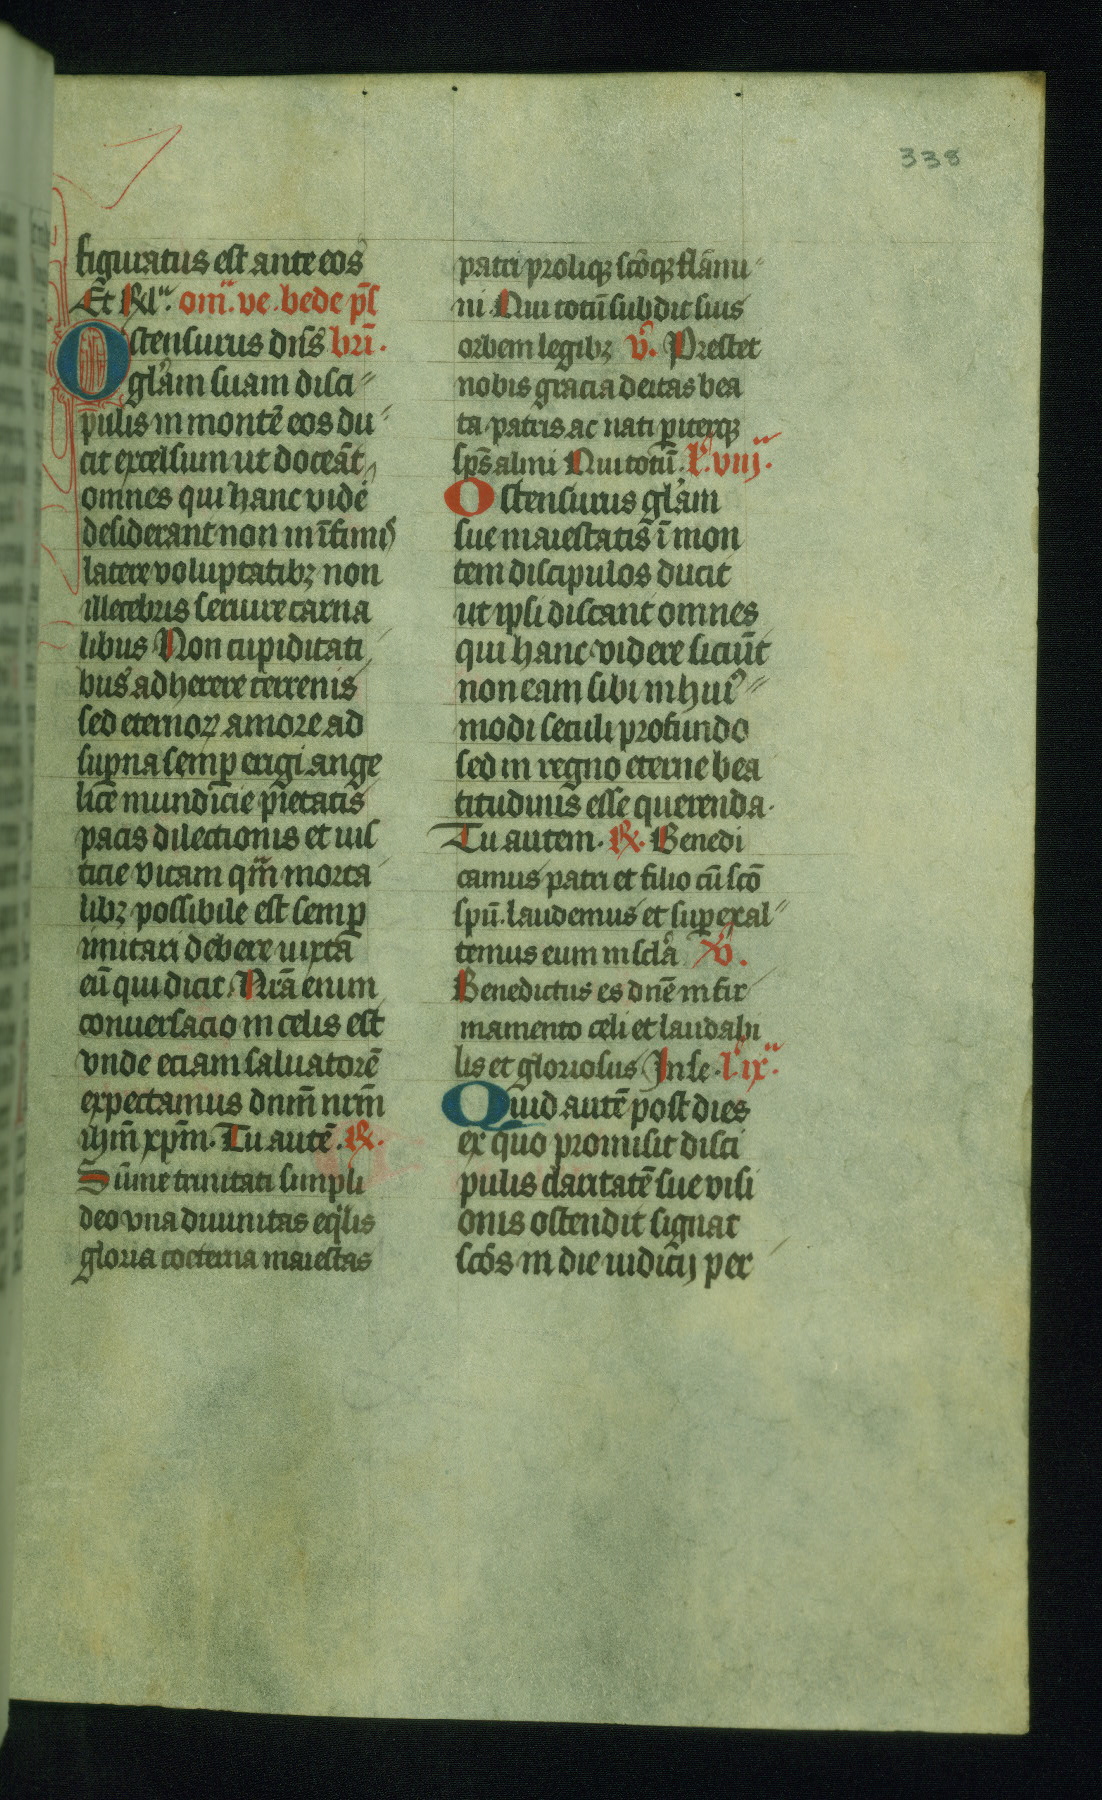 338
figuratus est ante eos
Et rel̄ᵃ. om̄ᵃ. ve. bede pr̄s
Ostensurus dn̄s br̄i.
gl'am suam disci
pulis in montē eos du
cit excelsum ut doceāt
omnes qui hanc vidē
desiderant non in īfimis
latere voluptatibꝫ non
illecebris seruire carna
libus Non cupiditati
bus adherere terrenis
sed eternoꝝ amore ad
suꝑna semꝑ erigi ange
lice mundicie pietatis
pacis dilectionis et ius
ticie vitam qm̄ morta
libꝫ possibile est semꝑ
imitari debere iuxta
eū qui dicit. Nr̄a enim
conuersacio in celis est
vnde eciam saluatorē
expectamus dnm̄ nrm̄
ihm̄ xpm̄. Tu autē. ℟.
Sūme trinitati simpli
deo vna diuinitas eq̄lis
gloria coeterna maiestas
patri proliqꝫ sc̄oqꝫ flāmi
ni Qui totū subdit suis
orbem legibꝫ v̄. Prestet
nobis gracia deitas bea
ta patris ac nati ꝑiterqꝫ
sp̄s almi Qui totū. l'. viij.
Ostensurus gl'am
sue maiestatis ī mon
tem discipulos ducit
ut ipsi discant omnes
qui hanc videre siciūt
non eam sibi in huiꝰ
modi seculi profundo
sed in regno eterne bea
titudinis esse querenda.
Tu autem. ℟. Benedi
camus patri et filio cū sc̄o
spū. laudemus et suꝑexal
temus eum in scl'a v̄.
Benedictus es dn̄e in fir
mamento celi et laudabi
lis et gloriosus In se. l' ix.
Quid autē post dies
ex quo promisit disci
pulis claritatē sue visi
onis ostendit signat
sc̄os in die iudicij per